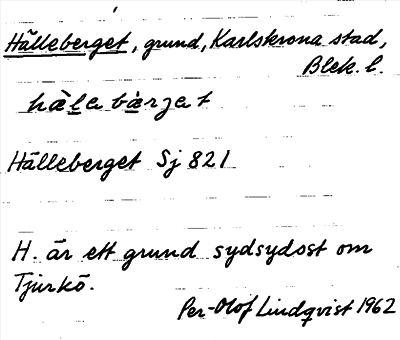 Hälleberget, grund, Karlskrona stad,
Blek. l.
hàlabàrjat
Hälleberget Sj 821
H. är ett grund sydsydost om
Tjurkö.
Per-Olof Lindqvist 1962